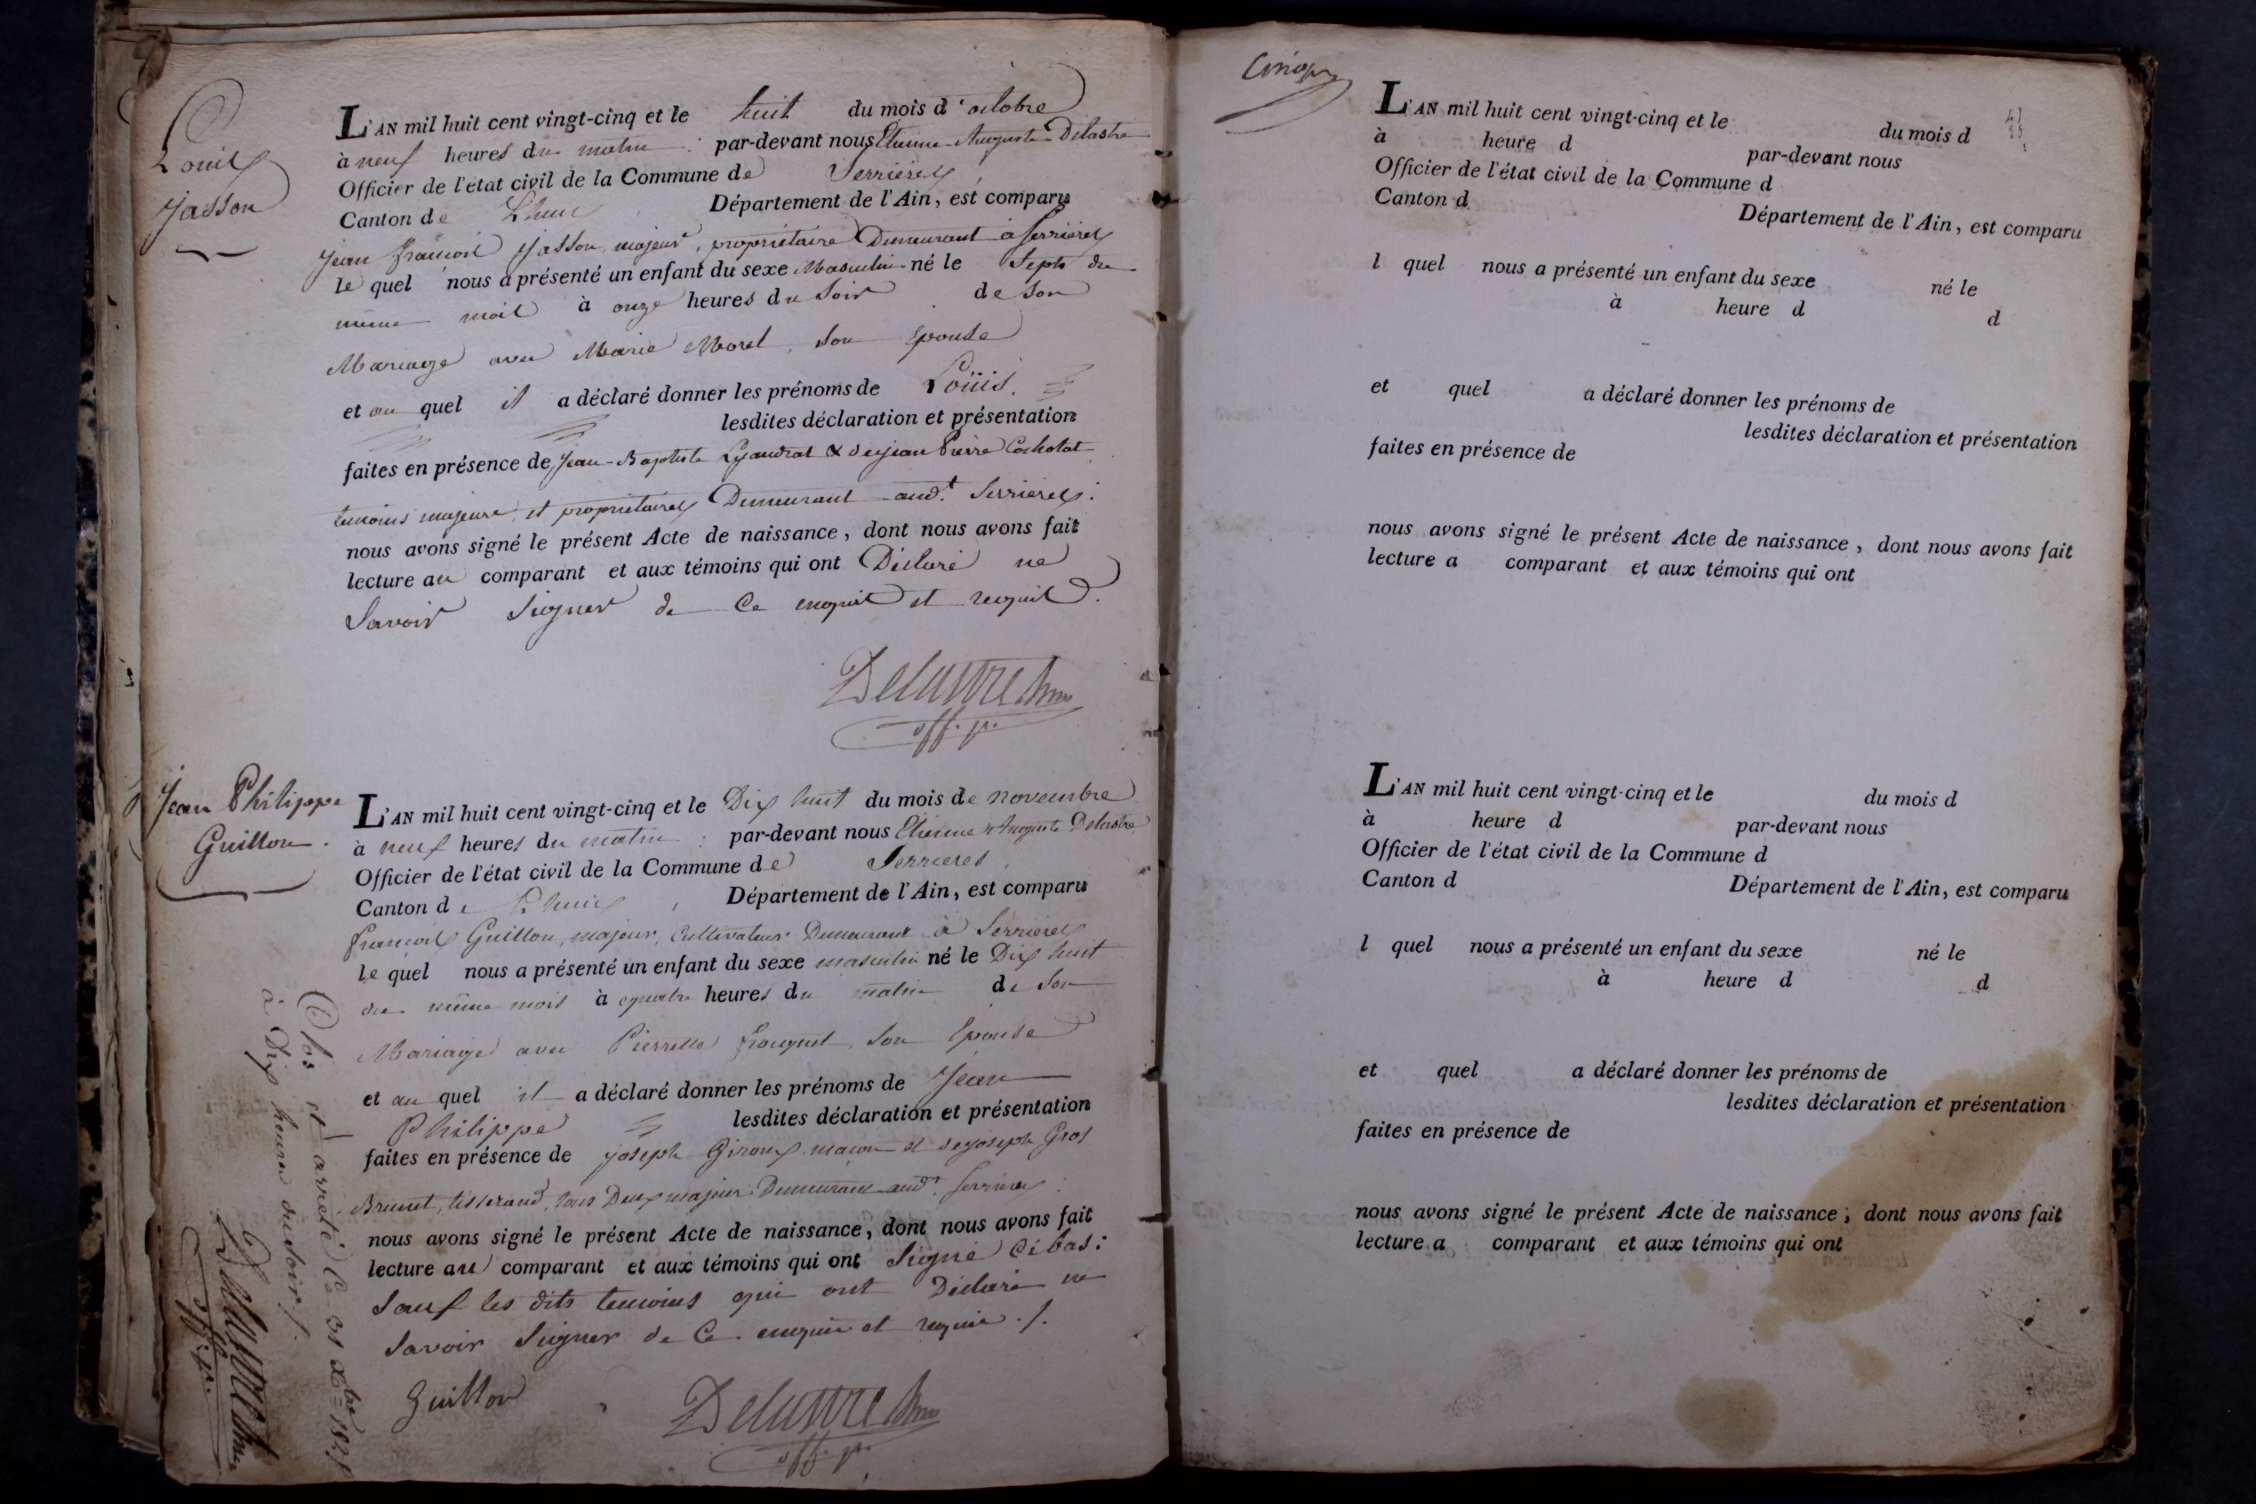 Louis
Jasson
L'AN mil huit cent vingt-cinq et le huit du mois d'octobre
à neuf heures du matin : par-devant nous Etienne-Auguste Delastre
Officier de l'état civil de la Commune de Serrieres
Canton de Lhuis Département de l'Ain, est comparu
Jean françois Jasson, majeur, propriétaire Demeurant à serrieres
le quel nous a présenté un enfant du sexe Masculin né le Sept du
même mois à onze heures du Soir de son
Mariage avec Marie Morel, son Epouse
et au quel il a déclaré donner les prénoms de Loüis.
lesdites déclaration et présentation
faites en présence de Jean-Baptiste & de jean Pierre Cochotat
temoins majeurs, et propriétaires Demeurant aud.t Serrieres :
nous avons signé le présent Acte de naissance, dont nous avons fait
lecture au comparant et aux témoins qui ont Déclaré ne
Savoir Signer de Ce enquis et requis.
Delastre
off. p.
Jean Philippe
Guillon.
L'AN mil huit cent vingt-cinq et le Dix huit du mois de novembre
à neuf heures du matin : par-devant nous Etienne Auguste Delastre
Officier de l'état civil de la Commune de Serrieres,
Canton de Lhuis, Département de l'Ain, est comparu
françois Guillon, majeur, Cultivateur Demeurant à Serrieres
le quel nous a présenté un enfant du sexe masculin né le Dix huit
du même mois à quatre heures du matin de Son
Mariage avec Pierrette son Epouse
et au quel il a déclaré donner les prénoms de Jean
Philippe lesdites déclaration et présentation
faites en présence de joseph Giroux maçon et de joseph Gros
Brunet, tisserand, tous Deux majeurs Demeurant aud.t serrieres :
nous avons signé le présent Acte de naissance, dont nous avons fait
lecture au comparant et aux témoins qui ont Signé Ci bas :
Sauf les dits temoins qui ont Déclaré ne
Savoir Signer de Ce enquis et requis ./.
Guillon
Delastre
off. p.
Clos et arreté Ce 31 Xbre 1825
à Dix heures du soir ./.
Delastre
off. p.
Cinq
L'AN mil huit cent vingt-cinq et le du mois d
à heure d par-devant nous
Officier de l'état civil de la Commune d
Canton d Département de l'Ain, est comparu
l quel nous a présenté un enfant du sexe né le
à heure d d
et quel a déclaré donner les prénoms de
lesdites déclaration et présentation
faites en présence de
nous avons signé le présent Acte de naissance, dont nous avons fait
lecture a comparant et aux témoins qui ont
L'AN mil huit cent vingt-cinq et le du mois d
à heure d par-devant nous
Officier de l'état civil de la Commune d
Canton d Département de l'Ain, est comparu
l quel nous a présenté un enfant du sexe né le
à heure d d
et quel a déclaré donner les prénoms de
lesdites déclaration et présentation
faites en présence de
nous avons signé le présent Acte de naissance, dont nous avons fait
lecture a comparant et aux témoins qui ont